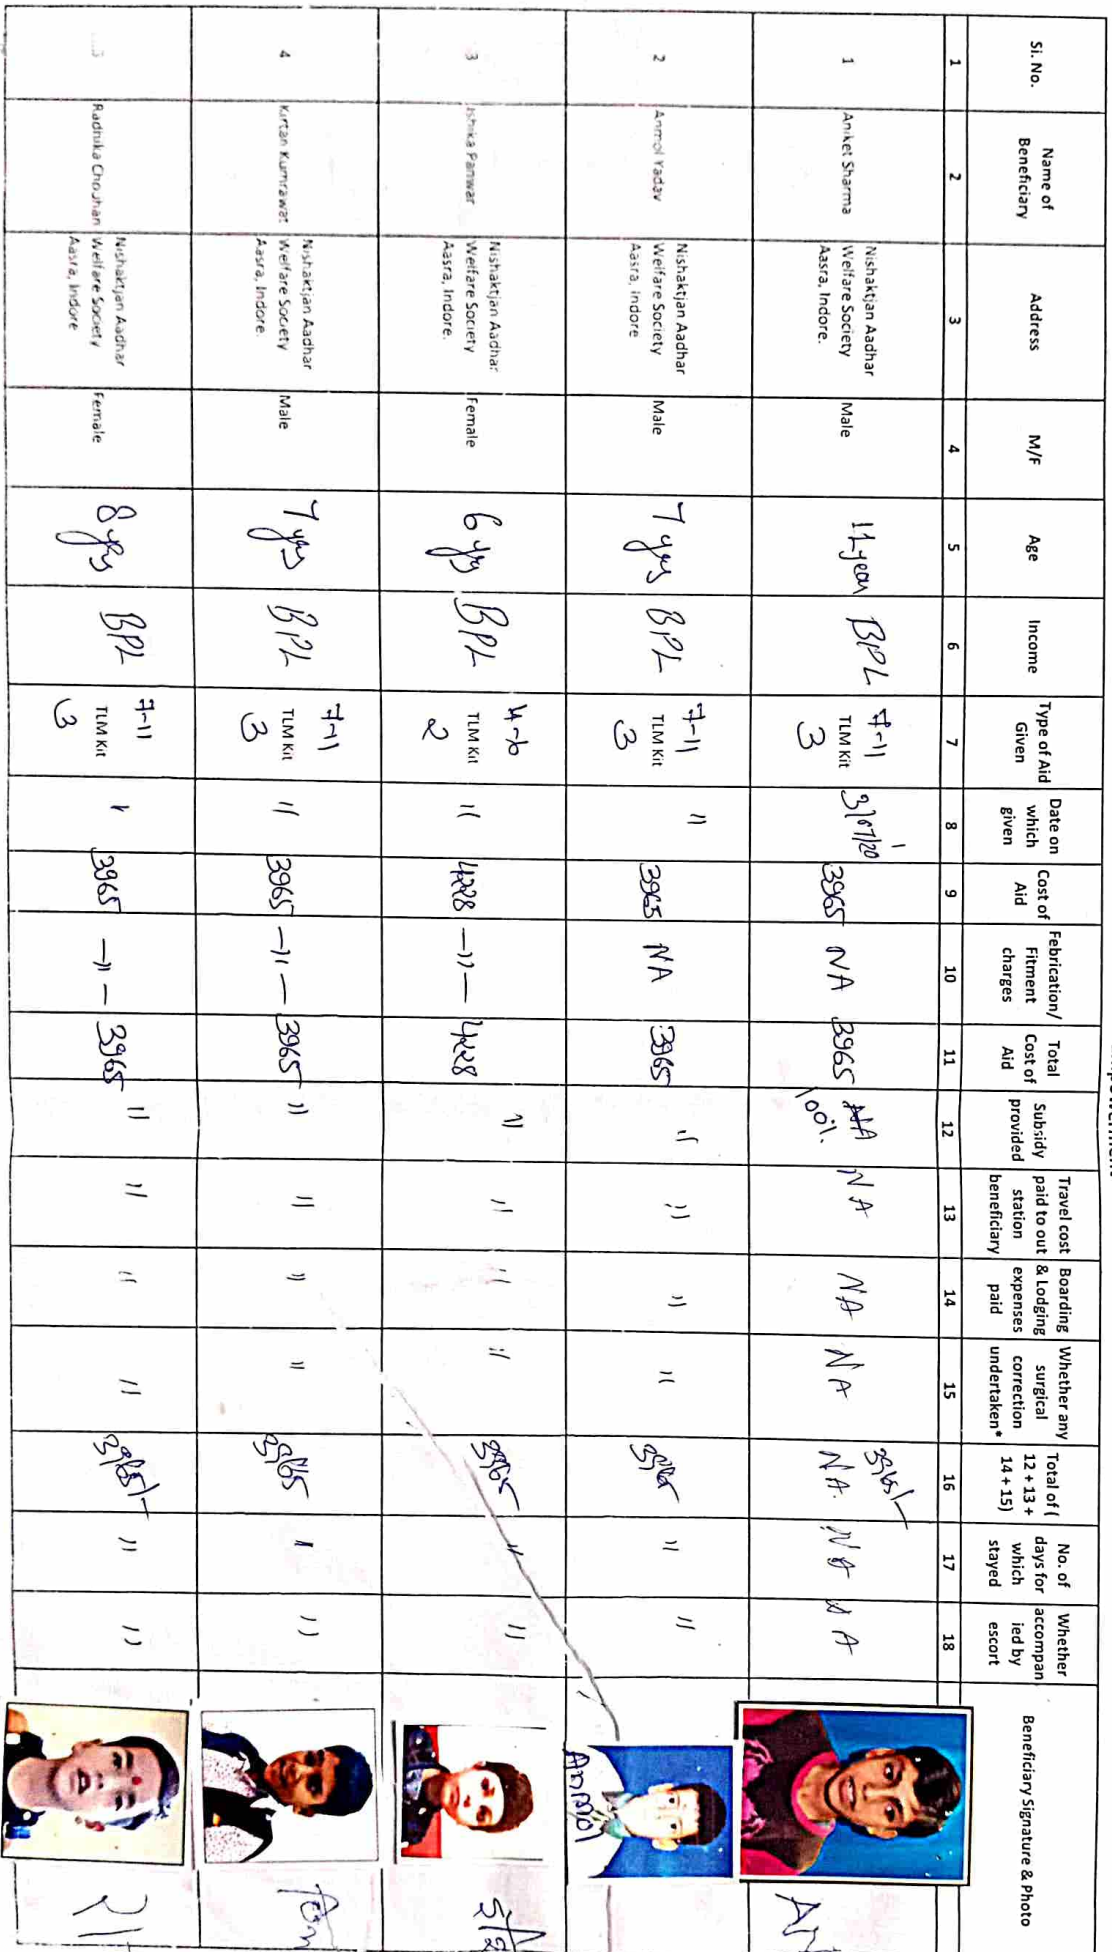 Si. No.
Name of
Beneficiary
Address
M/F
Age
Income
Type of Aid
Given
Date on
which
given
Cost of
Aid
Febrication/
Fitment
charges
Total
Cost of
Aid
Subsidy
provided
Travel cost
paid to out
station
beneficiary
Boarding
& Lodging
expenses
paid
Whether any
surgical
correction
undertaken*
Total of (
12 + 13 +
14 + 15)
No. of
days for
which
stayed
Whether
accompan
ied by
escort
Beneficiary Signature & Photo
1 2 3 4 5 6 7 8 9 10 11 12 13 14 15 16 17 18
1
Aniket Sharma
Nishaktjan Aadhar
Welfare Society
Aasra, Indore.
Male
11 year
BPL
7-11
TLM Kit
3
3965
NA
3965
100%
NA
NA
NA
3965/-
NA.
NA
NA
2
Anmol Yadav
Nishaktjan Aadhar
Welfare Society
Aasra, Indore
Male
7 yrs
BPL
7-11
TLM Kit
3
"
3965
NA
3965
"
"
"
"
3965
"
"
Anmol
3
Ishika Panwar
Nishaktjan Aadhar
Welfare Society
Aasra, Indore.
Female
6 yrs
BPL
4-6
TLM Kit
2
"
4228
—"—
4228
"
"
"
"
3965
"
"
4
Kirtan Kumrawat
Nishaktjan Aadhar
Welfare Society
Aasra, Indore.
Male
7 yrs
BPL
7-11
TLM Kit
3
"
3965
—"—
3965
"
"
"
"
3965
"
"
Radhika Chouhan
Nishaktjan Aadhar
Welfare Society
Aasra, Indore
Female
8 yrs
BPL
7-11
TLM Kit
3
"
3965
—"—
3965
"
"
"
"
3965/-
"
"